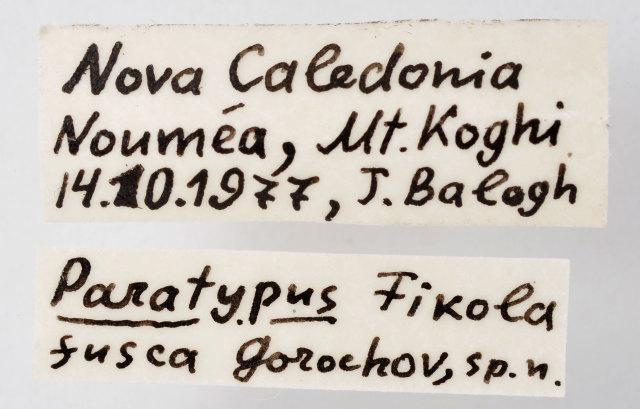 Nova Caledonia
Nouméa, Mt. Koghi
14.10.1977, J. Balogh
Paratypus Fikola
fusca Gorochov, sp. n.